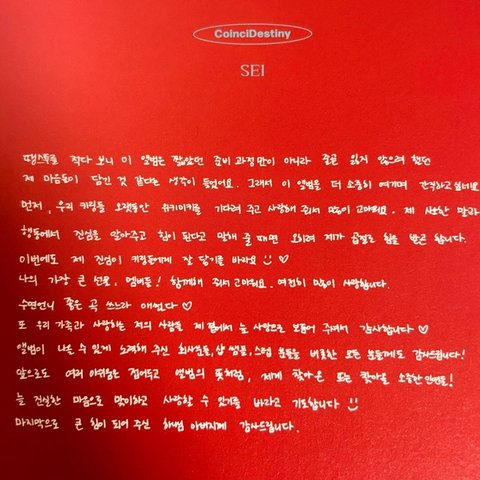 CoinciDestiny
SEI
땡스투를 적다 보니 이 앨범은 짧았던 준비 과정만이 아니라 줄곧 잃지 않으려 했던
제 마음들이 담긴 것 같다는 생각이 들었어요. 그래서 이 앨범을 더 소중히 여기며 간직하고 싶네요
먼저, 우리 키링들 오랫동안 위키미키를 기다려 주고 사랑해 줘서 많이 고마워요. 제 사소한 말과
행동에서 진심을 알아주고 힘이 된다고 말해 줄 때면 오히려 제가 곱절로 힘을 받곤 합니다.
이번에도 제 진심이 키링들에게 잘 닿기를 바라요 ♡
나의 가장 큰 선물, 멤버들! 함께해 줘서 고마워요. 여전히 많이 사랑합니다.
수연언니 좋은 곡 쓰느라 애썼다 ♡
또 우리 가족과 사랑하는 저의 사람들 제 곁에서 늘 사랑으로 보듬어 주셔서 감사합니다 ♡
앨범이 나올 수 있게 노력해 주신 회사분들, 샵 쌤들, 스텝 분들을 비롯한 모든 분들께도 감사드립니다!
앞으로도 여러 아쉬움은 접어두고 앨범의 뜻처럼, 제게 찾아온 또는 찾아올 소중한 인연들!
늘 진실한 마음으로 맞이하고 사랑할 수 있기를 바라고 기도합니다
마지막으로 큰 힘이 되어 주신 하나님 아버지께 감사드립니다.